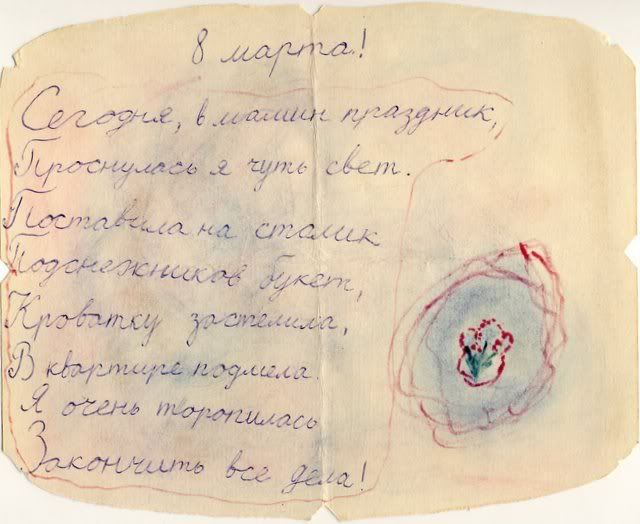 8 марта!
Сегодня, в мамин праздник,
Проснулась я чуть свет.
Поставила на столик
Подснежников букет,
Кроватку застелила,
В квартире подмела.
Я очень торопилась
Закончить все дела!